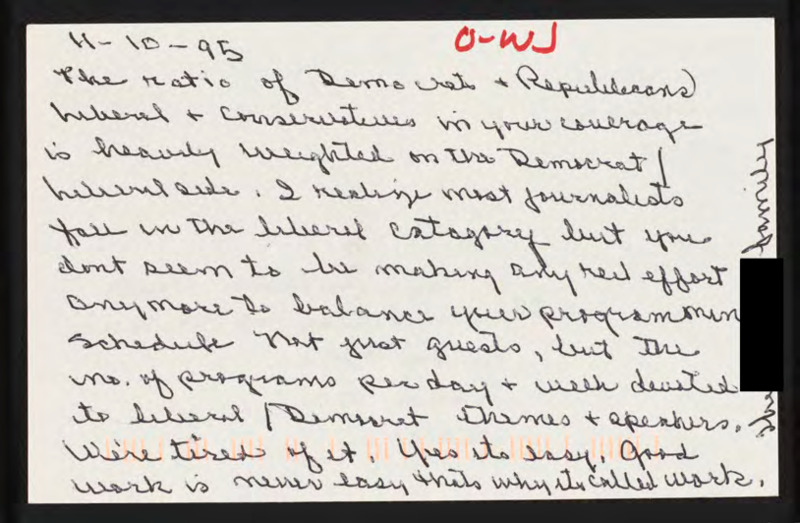 11-10-95 O-WJ
The ratio of Democrats + Republicans/
liberal + conservatives in your coverage
is heavily weighted on the Democrat/
liberal side. I realize most journalists
fall in the liberal catagory but you
dont seem to be making any real effort
anymore to balance your programmin
schedule Not just guests, but the
no. of programs per day + week devoted
to liberal/Democrat themes + speakers.
We're tired of it. Yes its easy. Good
work is never easy thats why its called work.
The
family